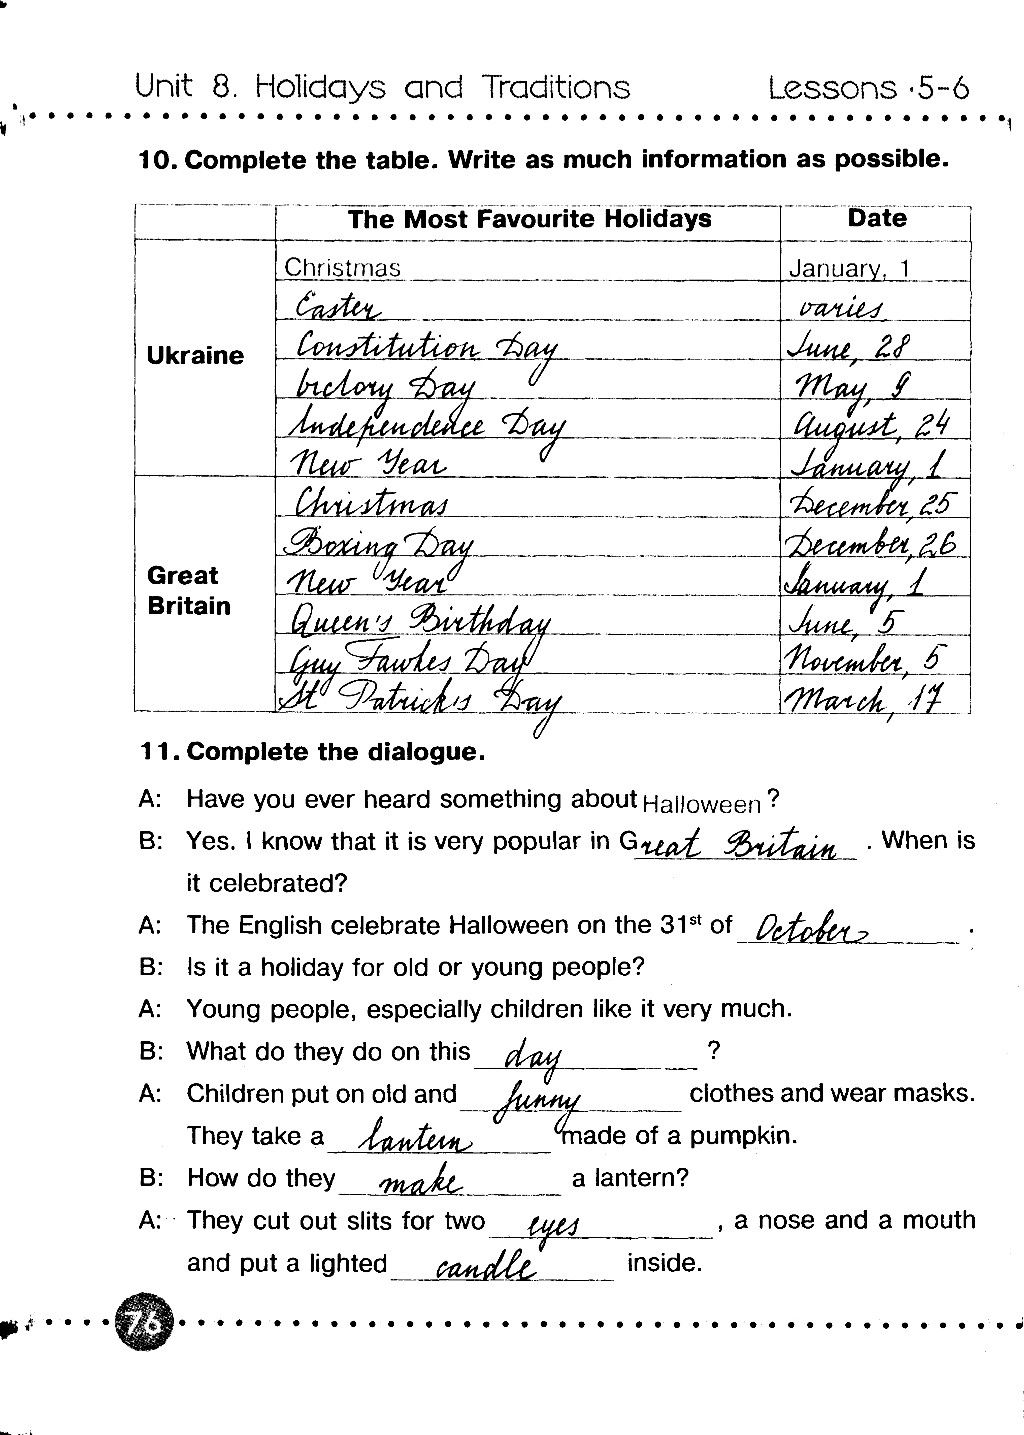 Unit 8. Holidays and Traditions Lessons 5-6
10. Complete the table. Write as much information as possible.
The Most Favourite Holidays Date
Christmas January, 1
Easter varies
Constitution Day June, 28
Ukraine
Victory Day May, 9
Independence Day August, 24
New Year January, 1
Christmas December, 25
Boxing Day December, 26
Great
New Year January, 1
Britain
Queen's Birthday June, 5
Guy Fawkes Day November, 5
St Patrick's Day March, 17
11. Complete the dialogue.
A: Have you ever heard something about Halloween?
B: Yes. I know that it is very popular in Great Britain. When is
it celebrated?
A: The English celebrate Halloween on the 31st of October.
B: Is it a holiday for old or young people?
A: Young people, especially children like it very much.
B: What do they do on this day?
A: Children put on old and funny clothes and wear masks.
They take a lantern made of a pumpkin.
B: How do they make a lantern?
A: They cut out slits for two eyes, a nose and a mouth
and put a lighted candle inside.
76